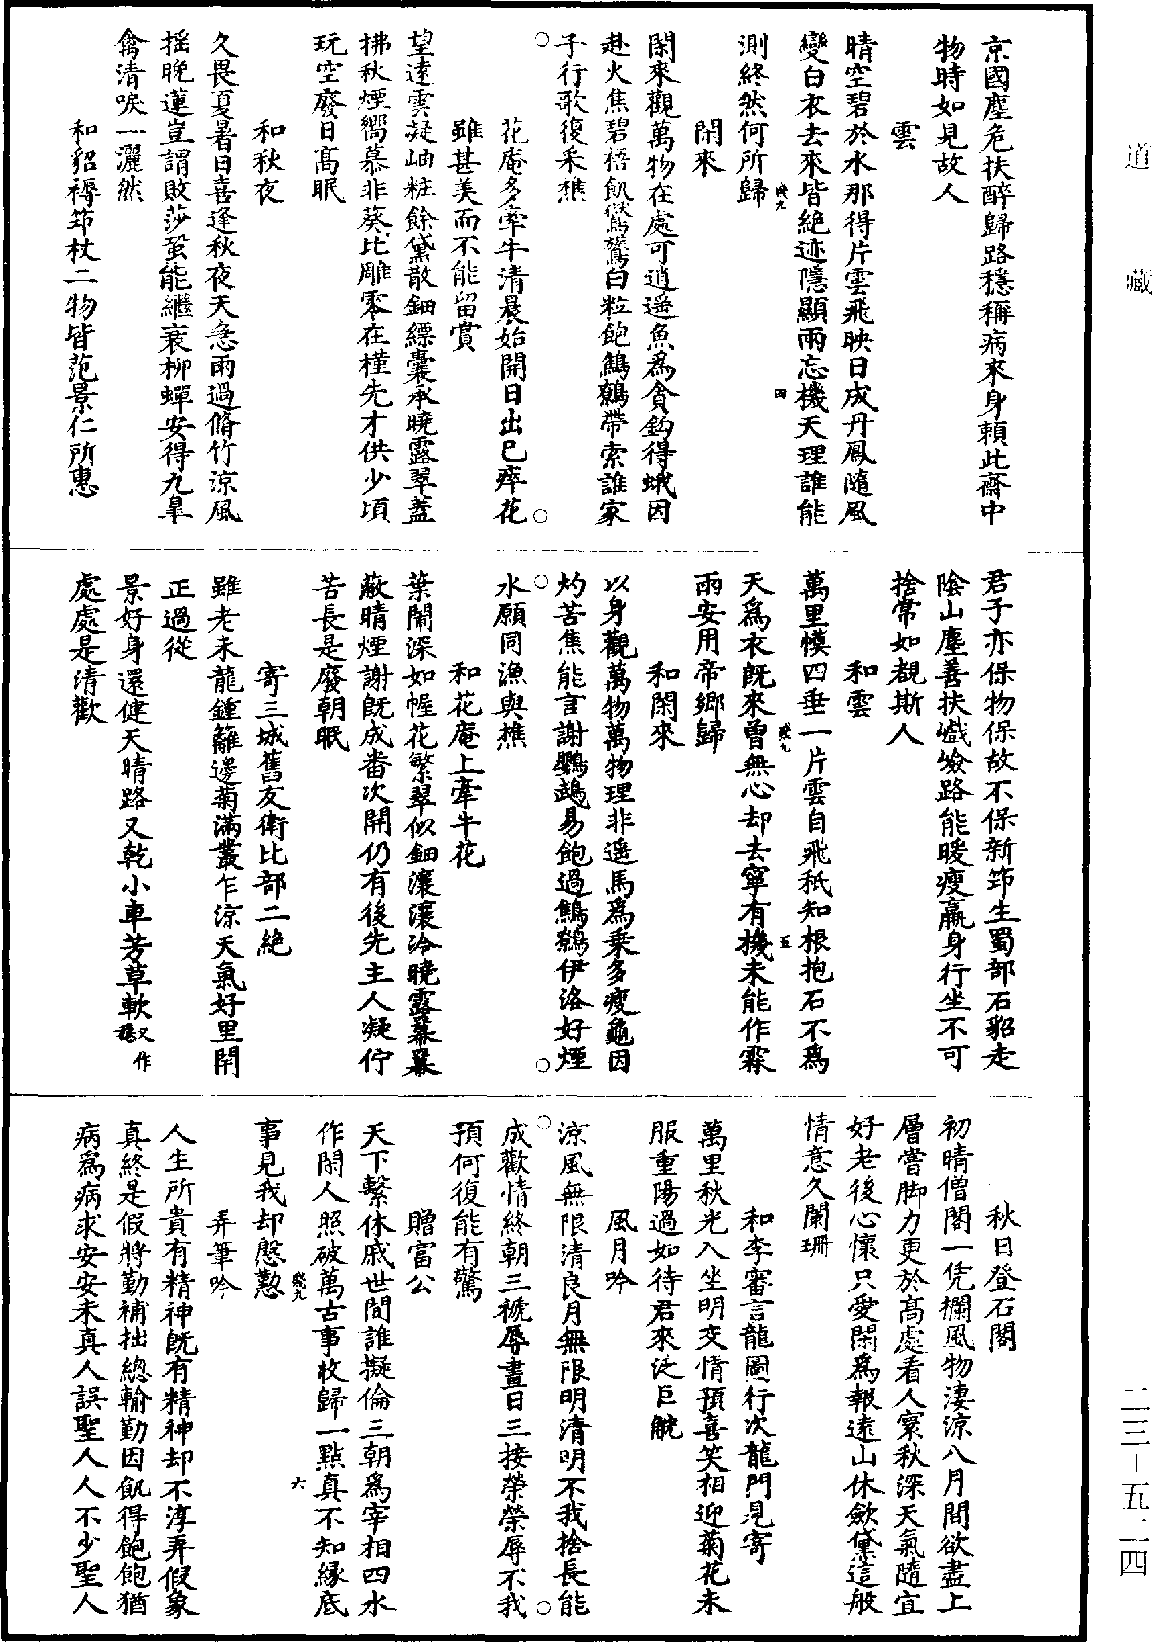 道藏
京國塵危扶醉歸路穩稱病來身賴此齋中
物時如見故人
雲
晴空碧於水那得片雲飛映日成丹鳳隨風
變白衣去來皆絕迹隱顯兩忘機天理誰能
測終然何所歸
閑來
閑來觀萬物在處可逍遙魚爲貪鈎得蛾因
赴火焦碧梧飢鸑鷟白粒飽鷦鷯帶索誰家
子行歌復采樵
花庵多牽牛清晨始開日出已瘁花
雖甚美而不能留賞
望遠雲凝岫粧餘黛散鈿縹囊承曉露翠蓋
拂秋煙嚮慕非葵比彫零在槿先才供少頃
玩空廢日高眠
和秋夜
久畏夏暑日喜逢秋夜天急雨過脩竹涼風
揺晚蓮豈謂敗莎蛩能繼衰柳蟬安得九臯
禽清唳一灑然
和貂褥筇杖二物皆范景仁所惠
君子亦保物保故不保新筇生蜀部石貂走
陰山塵善扶巇嶮路能暖瘦羸身行坐不可
捨常如覩斯人
和雲
萬里幙四垂一片雲自飛秖知根抱石不爲
天爲衣既來曾無心却去寧有機未能作霖
雨安用帝鄉歸
和閑來
以身觀萬物萬物理非遥馬爲乗多瘦龜因
灼苦焦能言謝鸚鵡易飽過鷦鷯伊洛好煙
水願同漁與樵
和花庵上牽牛花
葉閙深如幄花繁翠似鈿瀼瀼冷曉露羃羃
蔽晴煙謝既成畨次開仍有後先主人凝佇
苦長是廢朝眠
寄三城舊友衛比部二絶
雖老未龍鍾籬邊菊滿叢乍涼天氣好里閈
正過從
景好身還健天晴路又乾小車芳草軟又作穏
處處是清歡
秋日登石閣
初晴僧閣一凭欄風物淒涼八月間欲盡上
層嘗脚力更於高處看人寰秋深天氣隨宜
好老後心懷只愛閑爲報遠山休斂黛這般
情意久闌珊
和李審言龍圖行次龍門見寄
萬里秋光入坐明交情預喜笑相迎菊花未
服重陽過如待君來泛巨觥
風月吟
涼風無限清良月無限明清明不我捨長能
成歡情終朝三褫辱晝日三接榮榮辱不我
預何復能有驚
贈富公
天下繫休戚世間誰擬倫三朝爲宰相四水
作閑人照破萬古事收歸一點真不知緣底
事見我却慇懃
弄筆吟
人生所貴有精神既有精神却不淳弄假象
真終是假將勤補拙總輸勤因飢得飽飽猶
病爲病求安安未真人誤聖人人不少聖人
二三－五二四